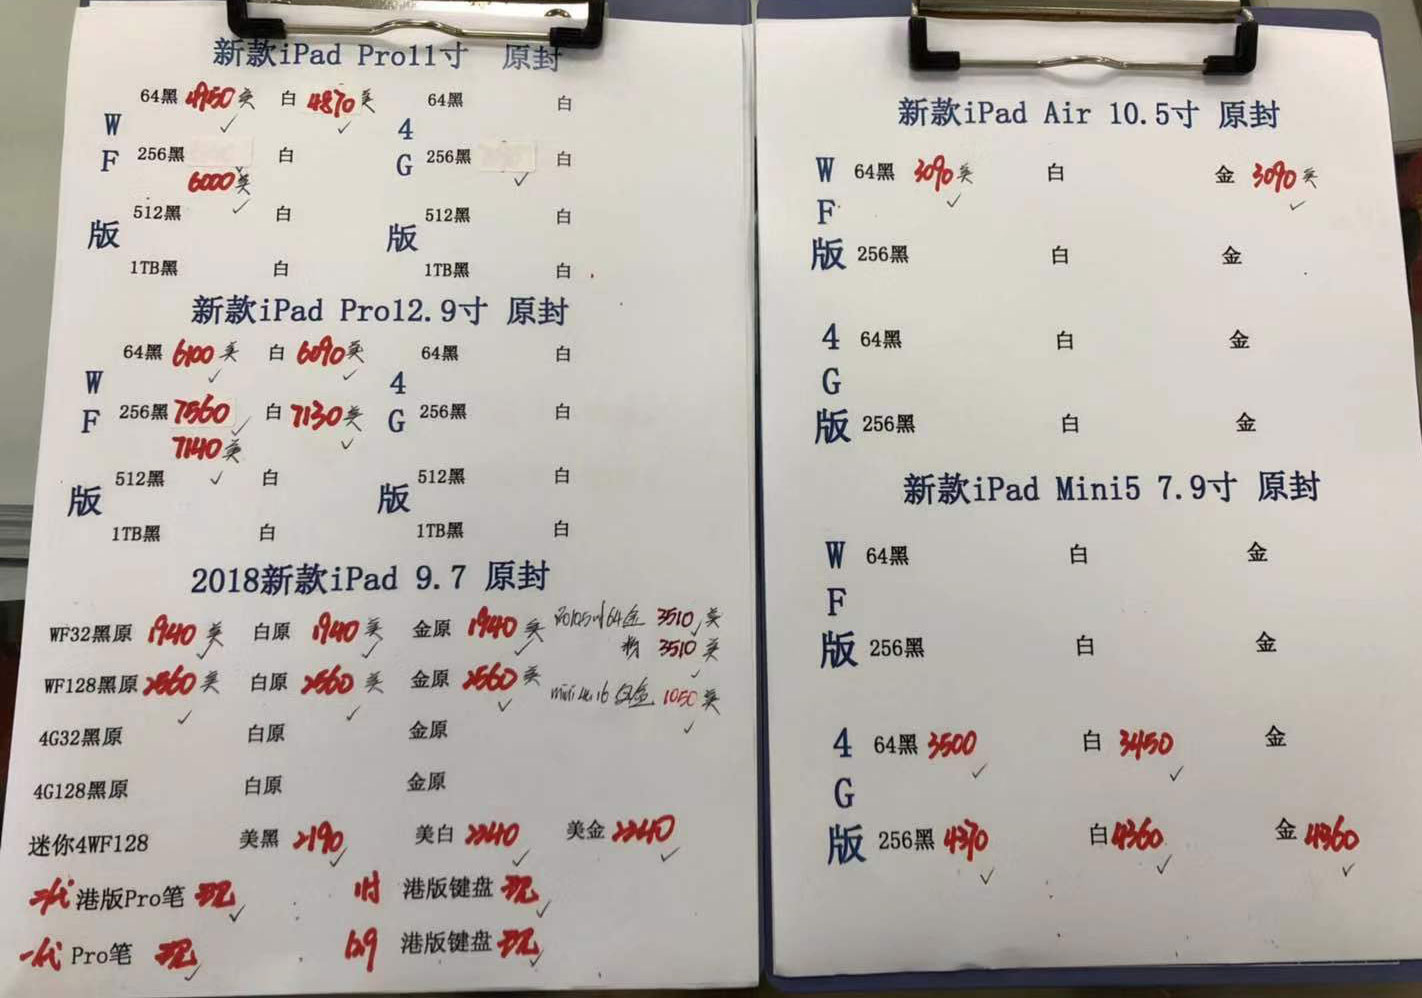 新款iPad Pro11寸 原封
64黑 4950美 白 4870美 64黑 白
WF版 4G版
256黑 白 256黑 白
6000美
512黑 白 512黑 白
1TB黑 白 1TB黑 白
新款iPad Pro12.9寸 原封
64黑 6100美 白 6090美 64黑 白
WF版 4G版
256黑 7560 白 7130美 256黑 白
7140美
512黑 白 512黑 白
1TB黑 白 1TB黑 白
2018新款iPad 9.7 原封
WF32黑原 1940美 白原 1940美 金原 1940美
64金 3510美
粉 3510美
WF128黑原 2560美 白原 2560美 金原 2560美
mini4 16 金 1050美
4G32黑原 白原 金原
4G128黑原 白原 金原
迷你4WF128 美黑 2190 美白 2240 美金 2240
二代 港版Pro笔 现 11寸 港版键盘 现
一代 Pro笔 现 12.9 港版键盘 现
新款iPad Air 10.5寸 原封
WF版
64黑 3090美 白 金 3090美
256黑 白 金
4G版
64黑 白 金
256黑 白 金
新款iPad Mini5 7.9寸 原封
WF版
64黑 白 金
256黑 白 金
4G版
64黑 3500 白 3450 金
256黑 4370 白 4360 金 4360